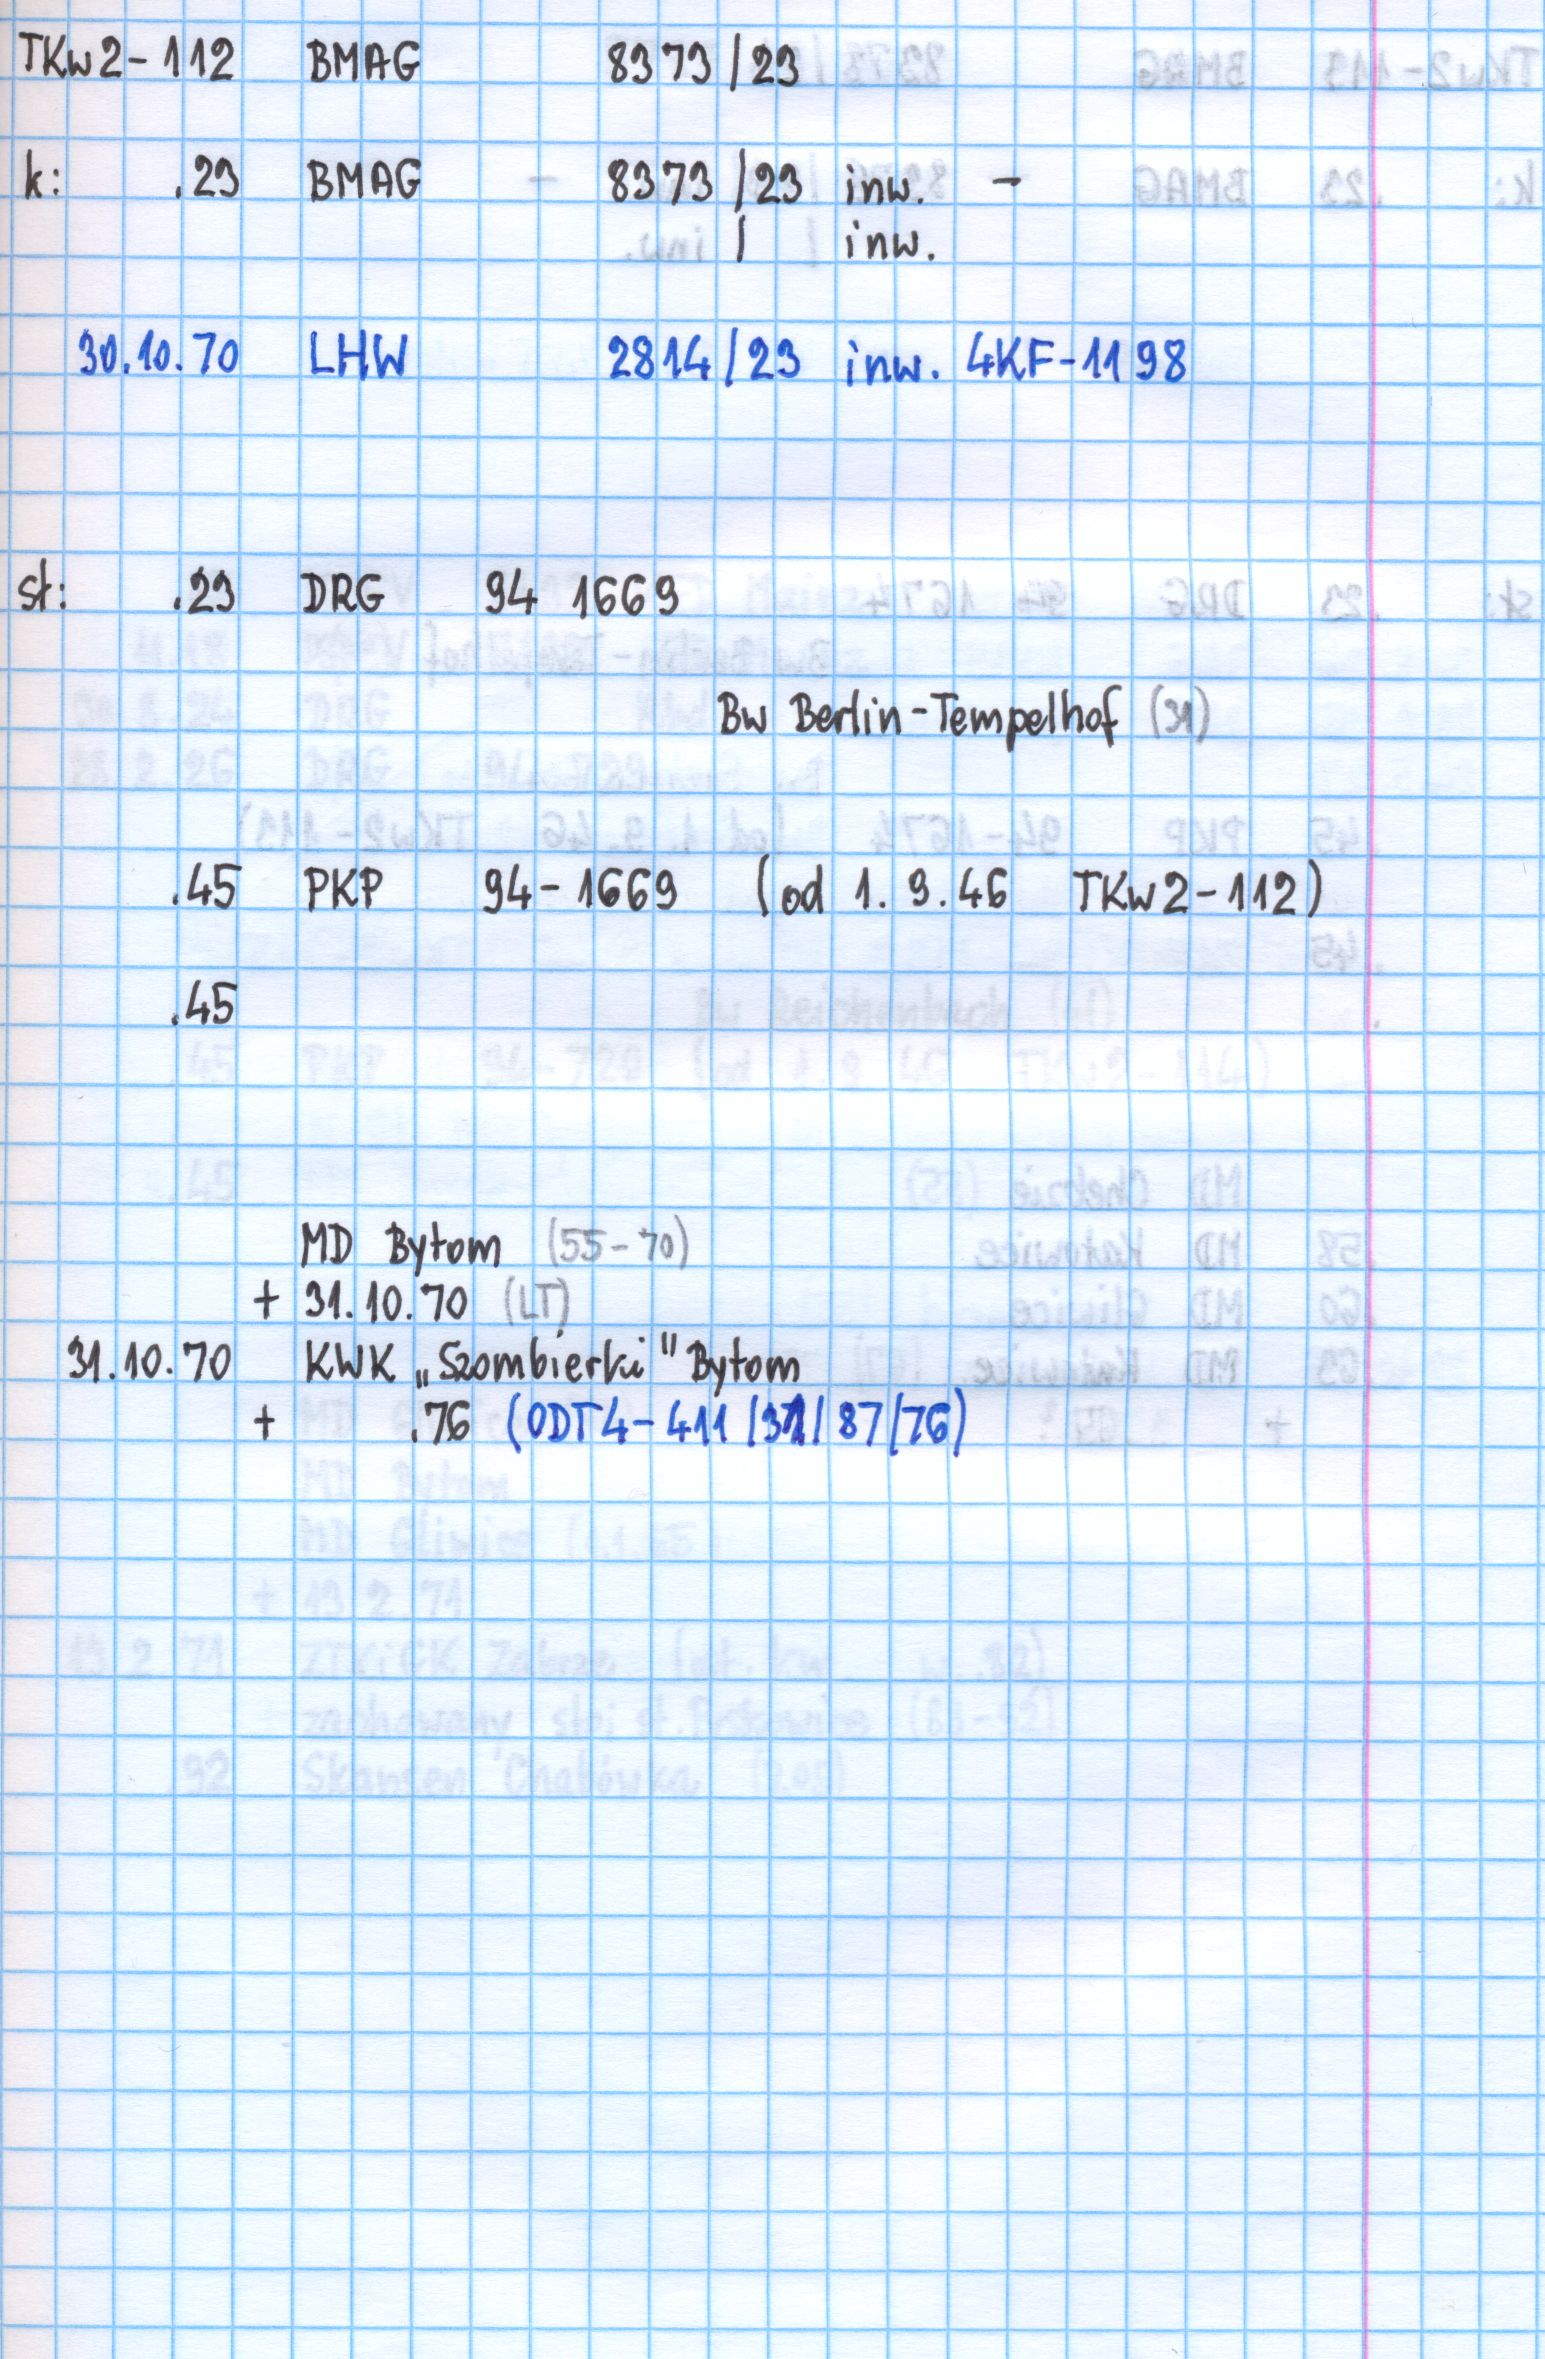 TKw2-112 BMAG 8373/23
k: .23 BMAG - 8373/23 inw. -
/ inw.
30.10.70 LHW 2814/23 inw. 4KF-1198
st: .23 DRG 94 1669
Bw Berlin-Tempelhof (31)
.45 PKP 94-1669 (od 1.9.46 TKw2-112)
.45
MD Bytom (55-70)
+ 31.10.70 (LT)
31.10.70 KWK „Szombierki" Bytom
+ .76 (ODT4-411/31/87/76)